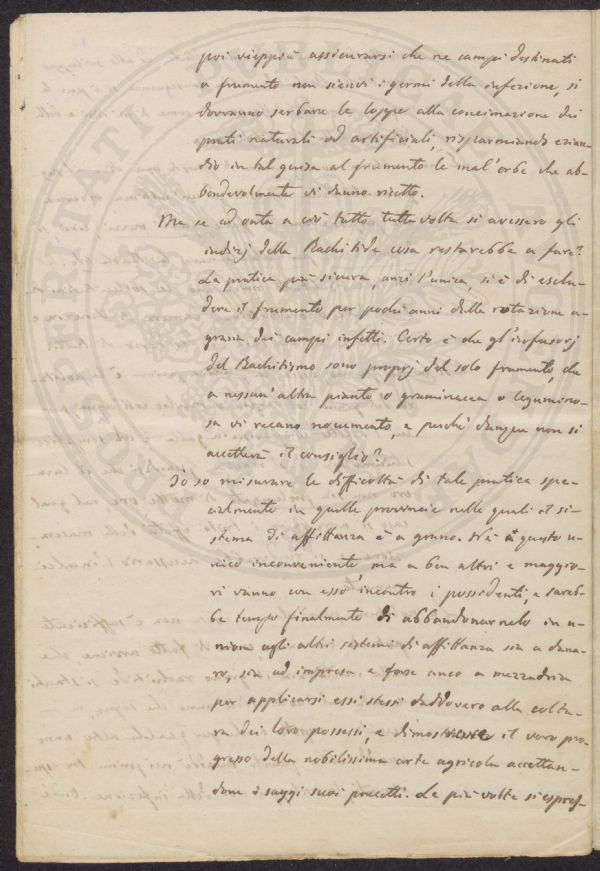 poi vieppiù assicurarsi che ne campi destinati
a frumento non sienvi i germi della infezione, si
dovranno serbare le loppe alla concimazione dei
prati naturali od artificiali, risparmiando ezian-
dio in tal guisa al frumento le mal'erbe che ab-
bondevolmente vi danno ricetto.
Ma se ad onta a ciò tutto tuttavolta si avessero gli
indizj della Rachitide cosa resterebbe a fare?
La pratica più sicura, anzi l'unica, si è di esclu-
dere il frumento per pochi anni dalla rotazione a-
graria dei campi infetti. Certo è che gl'infusorj
del Rachitismo sono proprj del solo frumento, che
a nessun'altra pianta o graminacea o legumino-
sa vi recano nocumento, e perchè dunque non si
accetterà il consiglio?
Io so misurare le difficoltà di tale pratica spe-
cialmente in quelle provincie nelle quali il si-
stema di affittanza è a grano. Nè a questo u-
nico inconveniente ma a ben altri e maggio-
ri vanno con esso incontro i possidenti, e sareb-
be tempo finalmente di abbandonarnelo in u-
nione agli altri sistemi di affittanza sia a dana-
ro, sia ad impresa e forse anco a mezzadria
per applicarsi essi stessi daddovero alla coltu-
ra dei loro possessi, e dimostrare il vero pro-
gresso della nobilissima arte agricola accettan-
done i saggi suoi precetti. Le più volte si espres-